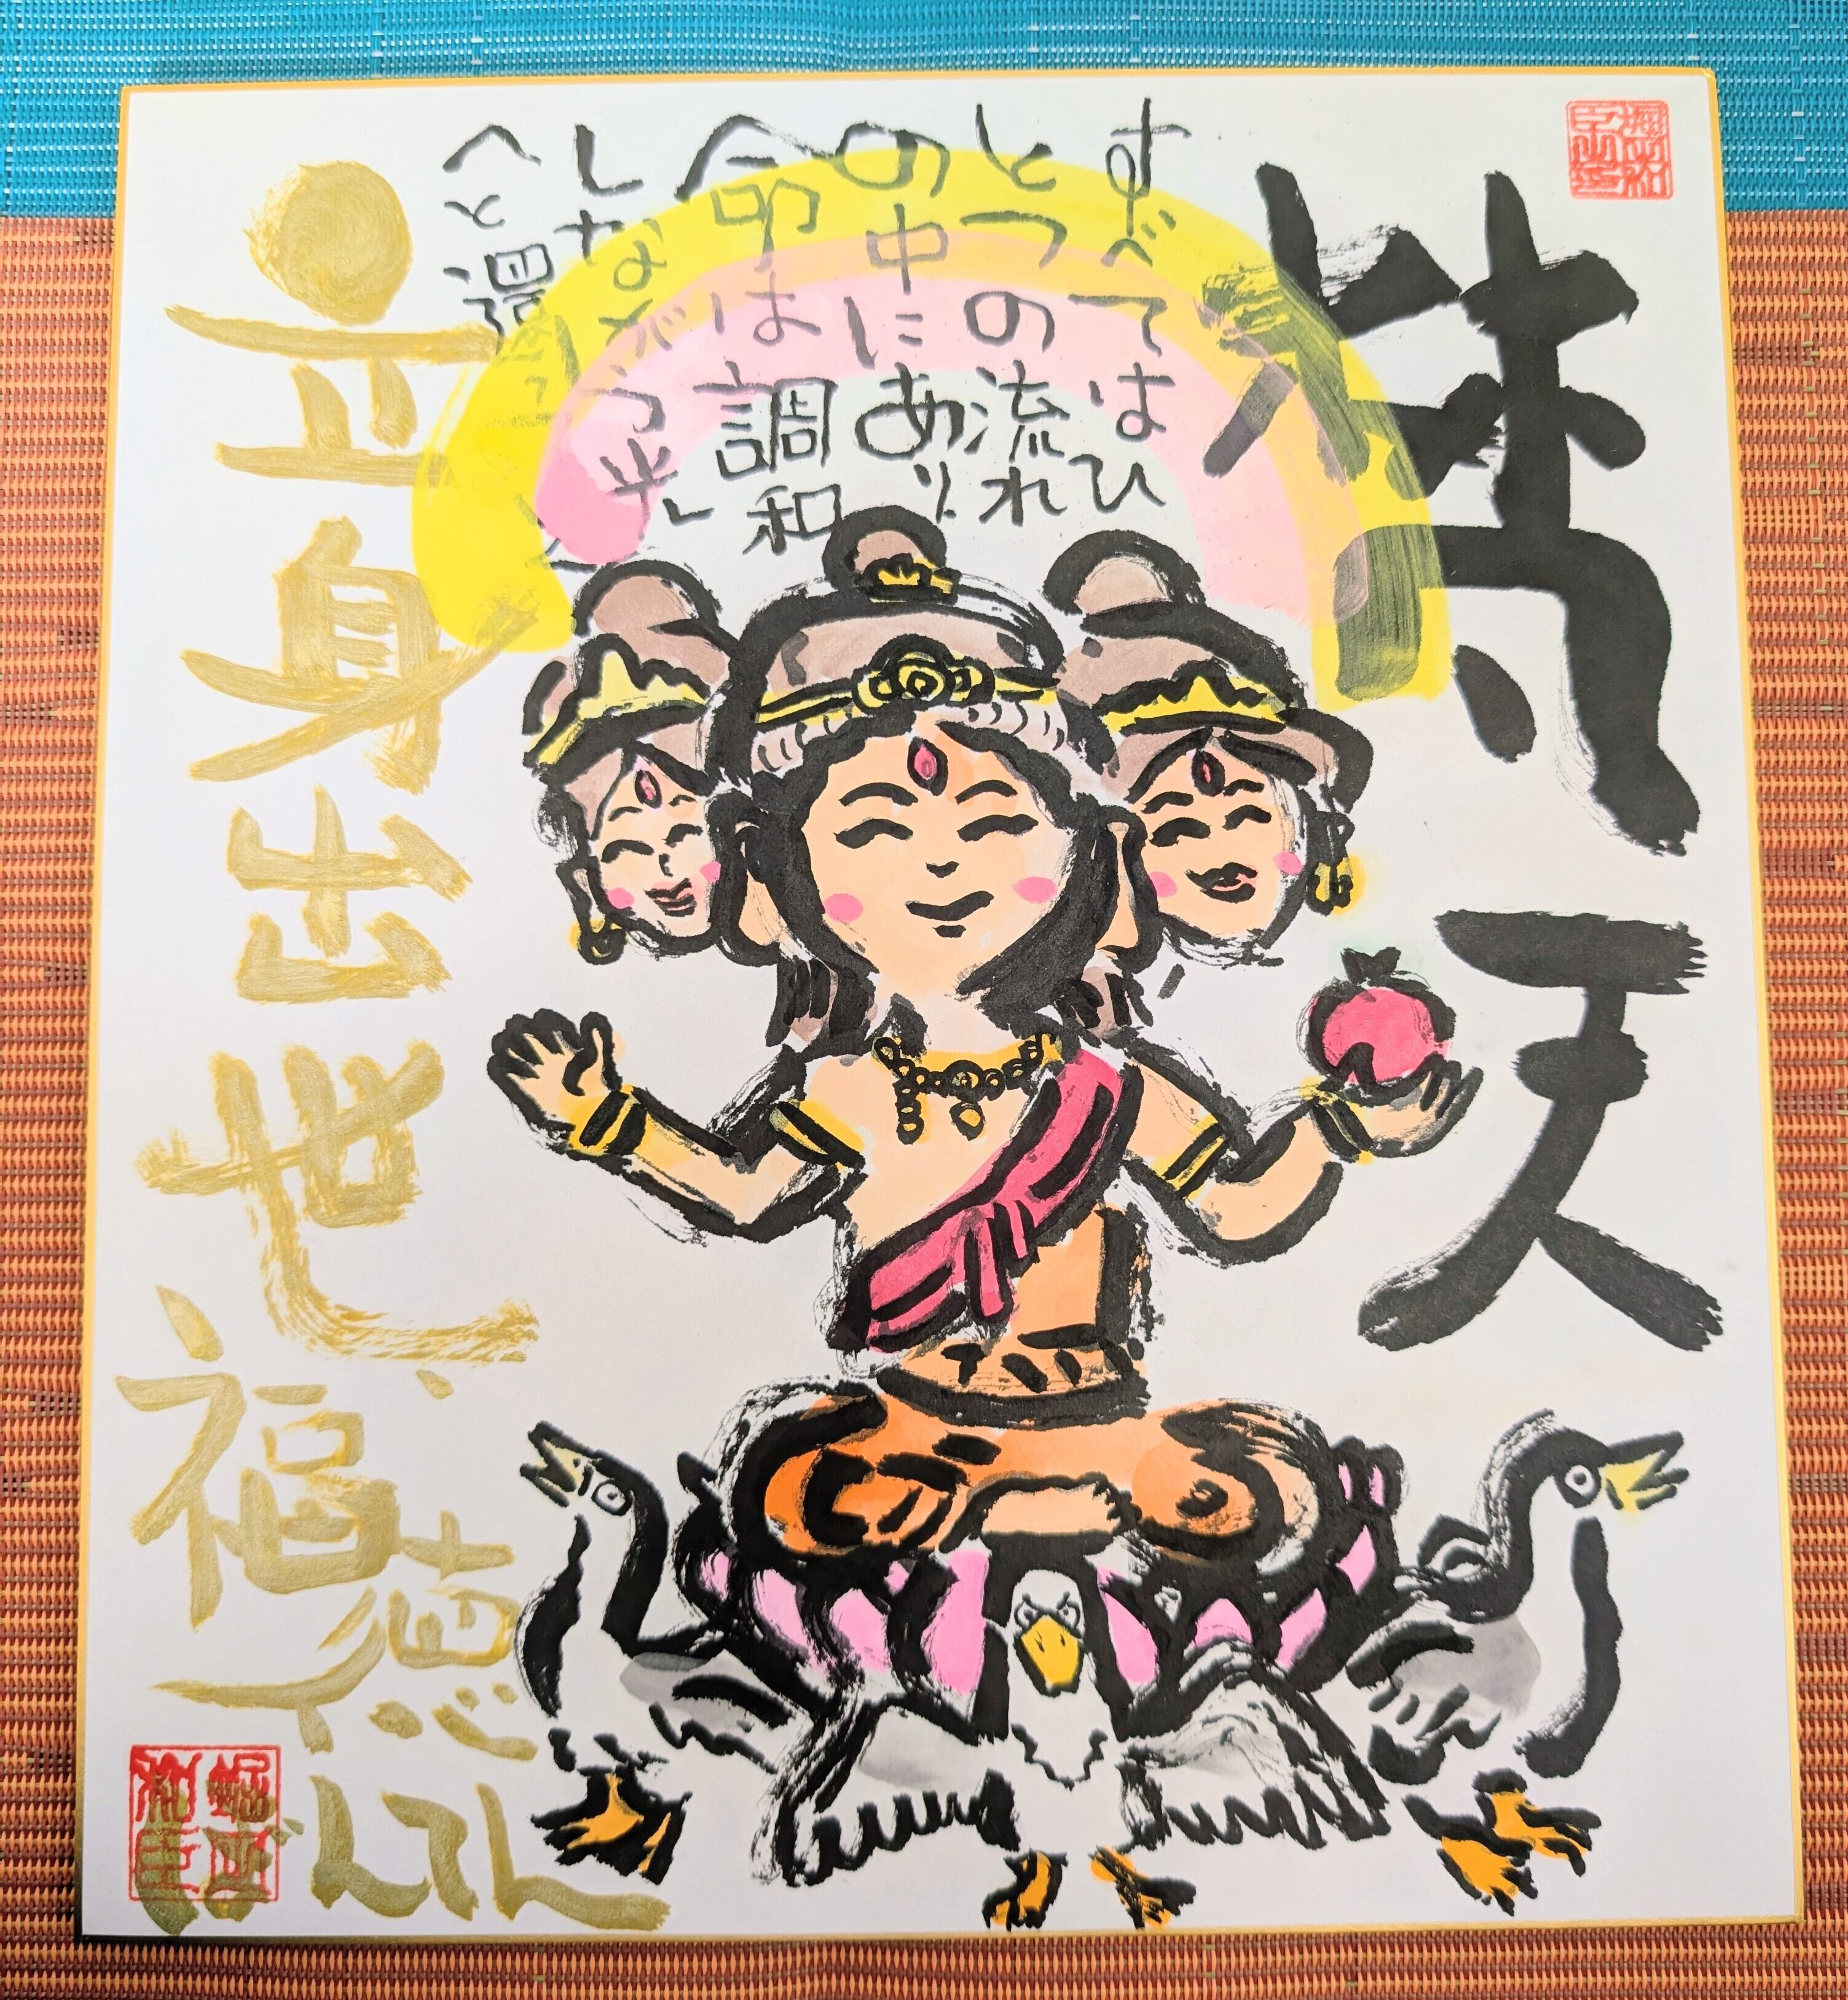 梵天
すべてはひ
とつの流れ
の中にあり、
命は調和
しながら光
へと還
立身出世、
福徳
ぼんてん